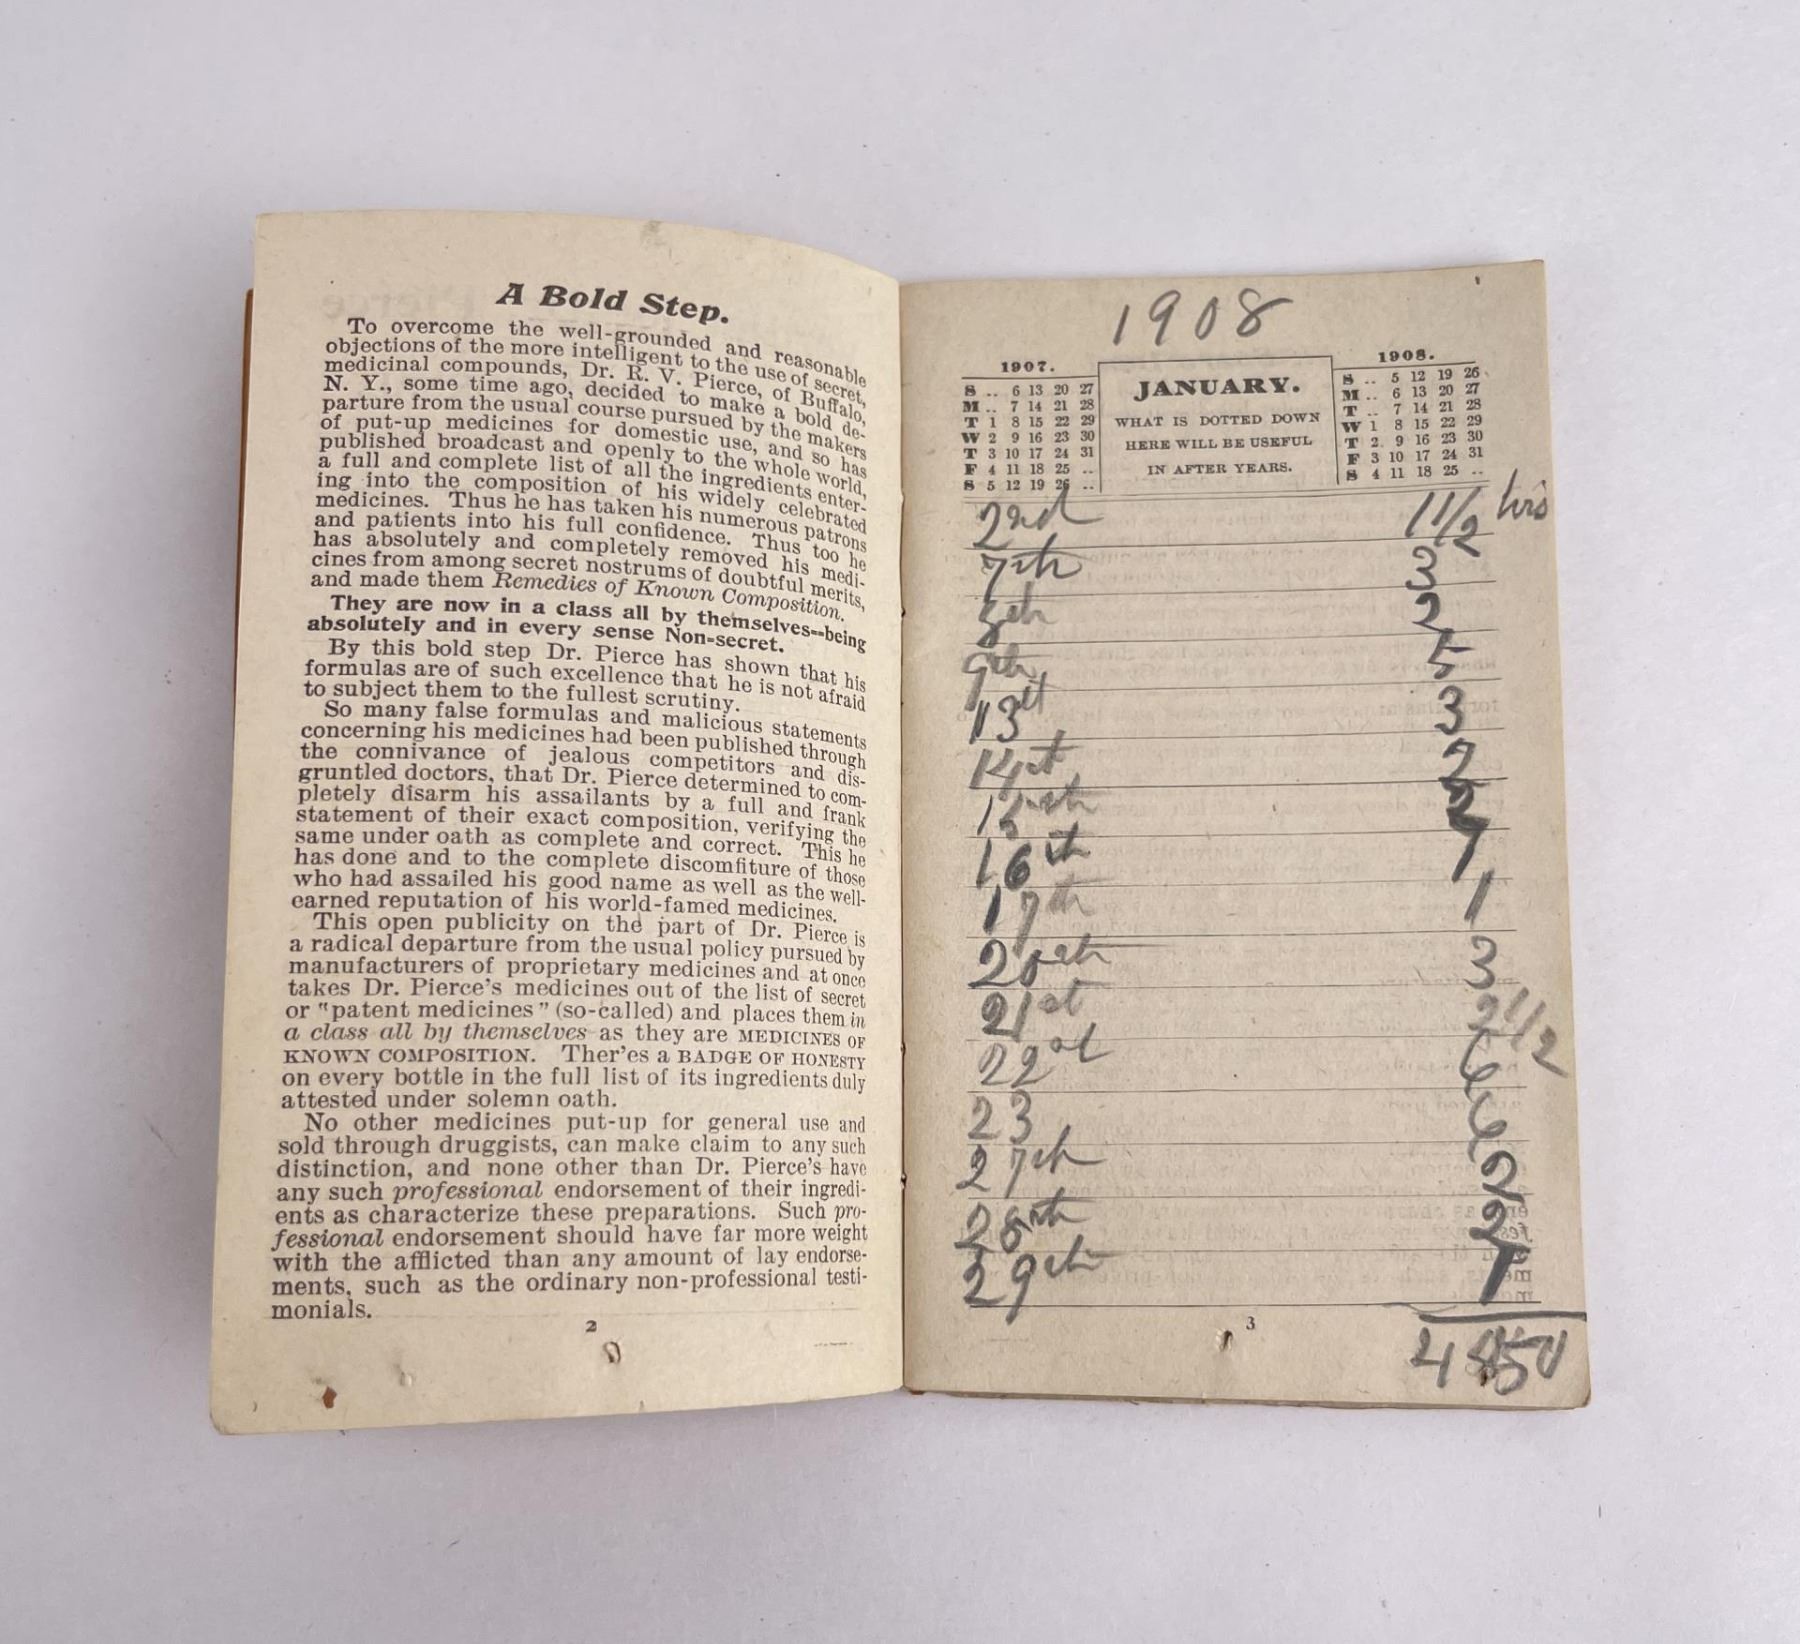 A Bold Step.
To overcome the well-grounded and reasonable
objections of the more intelligent to the use of secret,
medicinal compounds, Dr. R. V. Pierce, of Buffalo,
N. Y., some time ago, decided to make a bold de-
parture from the usual course pursued by the makers
of put-up medicines for domestic use, and so has
published broadcast and openly to the whole world,
a full and complete list of all the ingredients enter-
ing into the composition of his widely celebrated
medicines. Thus he has taken his numerous patrons
and patients into his full confidence. Thus too he
has absolutely and completely removed his medi-
cines from among secret nostrums of doubtful merits,
and made them Remedies of Known Composition.
They are now in a class all by themselves--being
absolutely and in every sense Non-secret.
By this bold step Dr. Pierce has shown that his
formulas are of such excellence that he is not afraid
to subject them to the fullest scrutiny.
So many false formulas and malicious statements
concerning his medicines had been published through
the connivance of jealous competitors and dis-
gruntled doctors, that Dr. Pierce determined to com-
pletely disarm his assailants by a full and frank
statement of their exact composition, verifying the
same under oath as complete and correct. This he
has done and to the complete discomfiture of those
who had assailed his good name as well as the well-
earned reputation of his world-famed medicines.
This open publicity on the part of Dr. Pierce is
a radical departure from the usual policy pursued by
manufacturers of proprietary medicines and at once
takes Dr. Pierce's medicines out of the list of secret
or "patent medicines" (so-called) and places them in
a class all by themselves as they are MEDICINES OF
KNOWN COMPOSITION. Ther'es a BADGE OF HONESTY
on every bottle in the full list of its ingredients duly
attested under solemn oath.
No other medicines put-up for general use and
sold through druggists, can make claim to any such
distinction, and none other than Dr. Pierce's have
any such professional endorsement of their ingredi-
ents as characterize these preparations. Such pro-
fessional endorsement should have far more weight
with the afflicted than any amount of lay endorse-
ments, such as the ordinary non-professional testi-
monials.
2
1908
1907.
S .. 6 13 20 27
M .. 7 14 21 28
T 1 8 15 22 29
W 2 9 16 23 30
T 3 10 17 24 31
F 4 11 18 25 ..
S 5 12 19 26 ..
JANUARY.
WHAT IS DOTTED DOWN
HERE WILL BE USEFUL
IN AFTER YEARS.
1908.
S .. 5 12 19 26
M .. 6 13 20 27
T .. 7 14 21 28
W 1 8 15 22 29
T 2 9 16 23 30
F 3 10 17 24 31
S 4 11 18 25 ..
2nd 1 1/2 hrs
7th 3
8th 2
9th 5
13th 3
14th 2
15th 2
16th 1
17th 1
20th 3
21st 2 1/2
22nd 6
23 6
27th 2
28th 2
29th 1
3